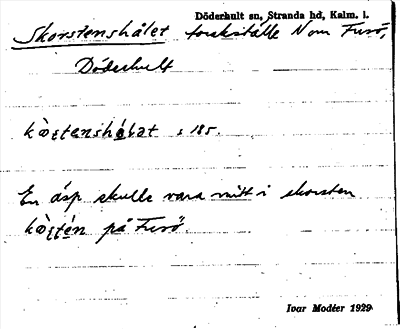 Döderhult sn, Stranda hd, Kalm. l.
Skorstenshålet torskställe N om Furö,
Döderhult
kòʂʈenshålət s 185.
En ásp skulle vara mitt i skorsten
kòʂʈén på Furö.
Ivar Modéer 1929